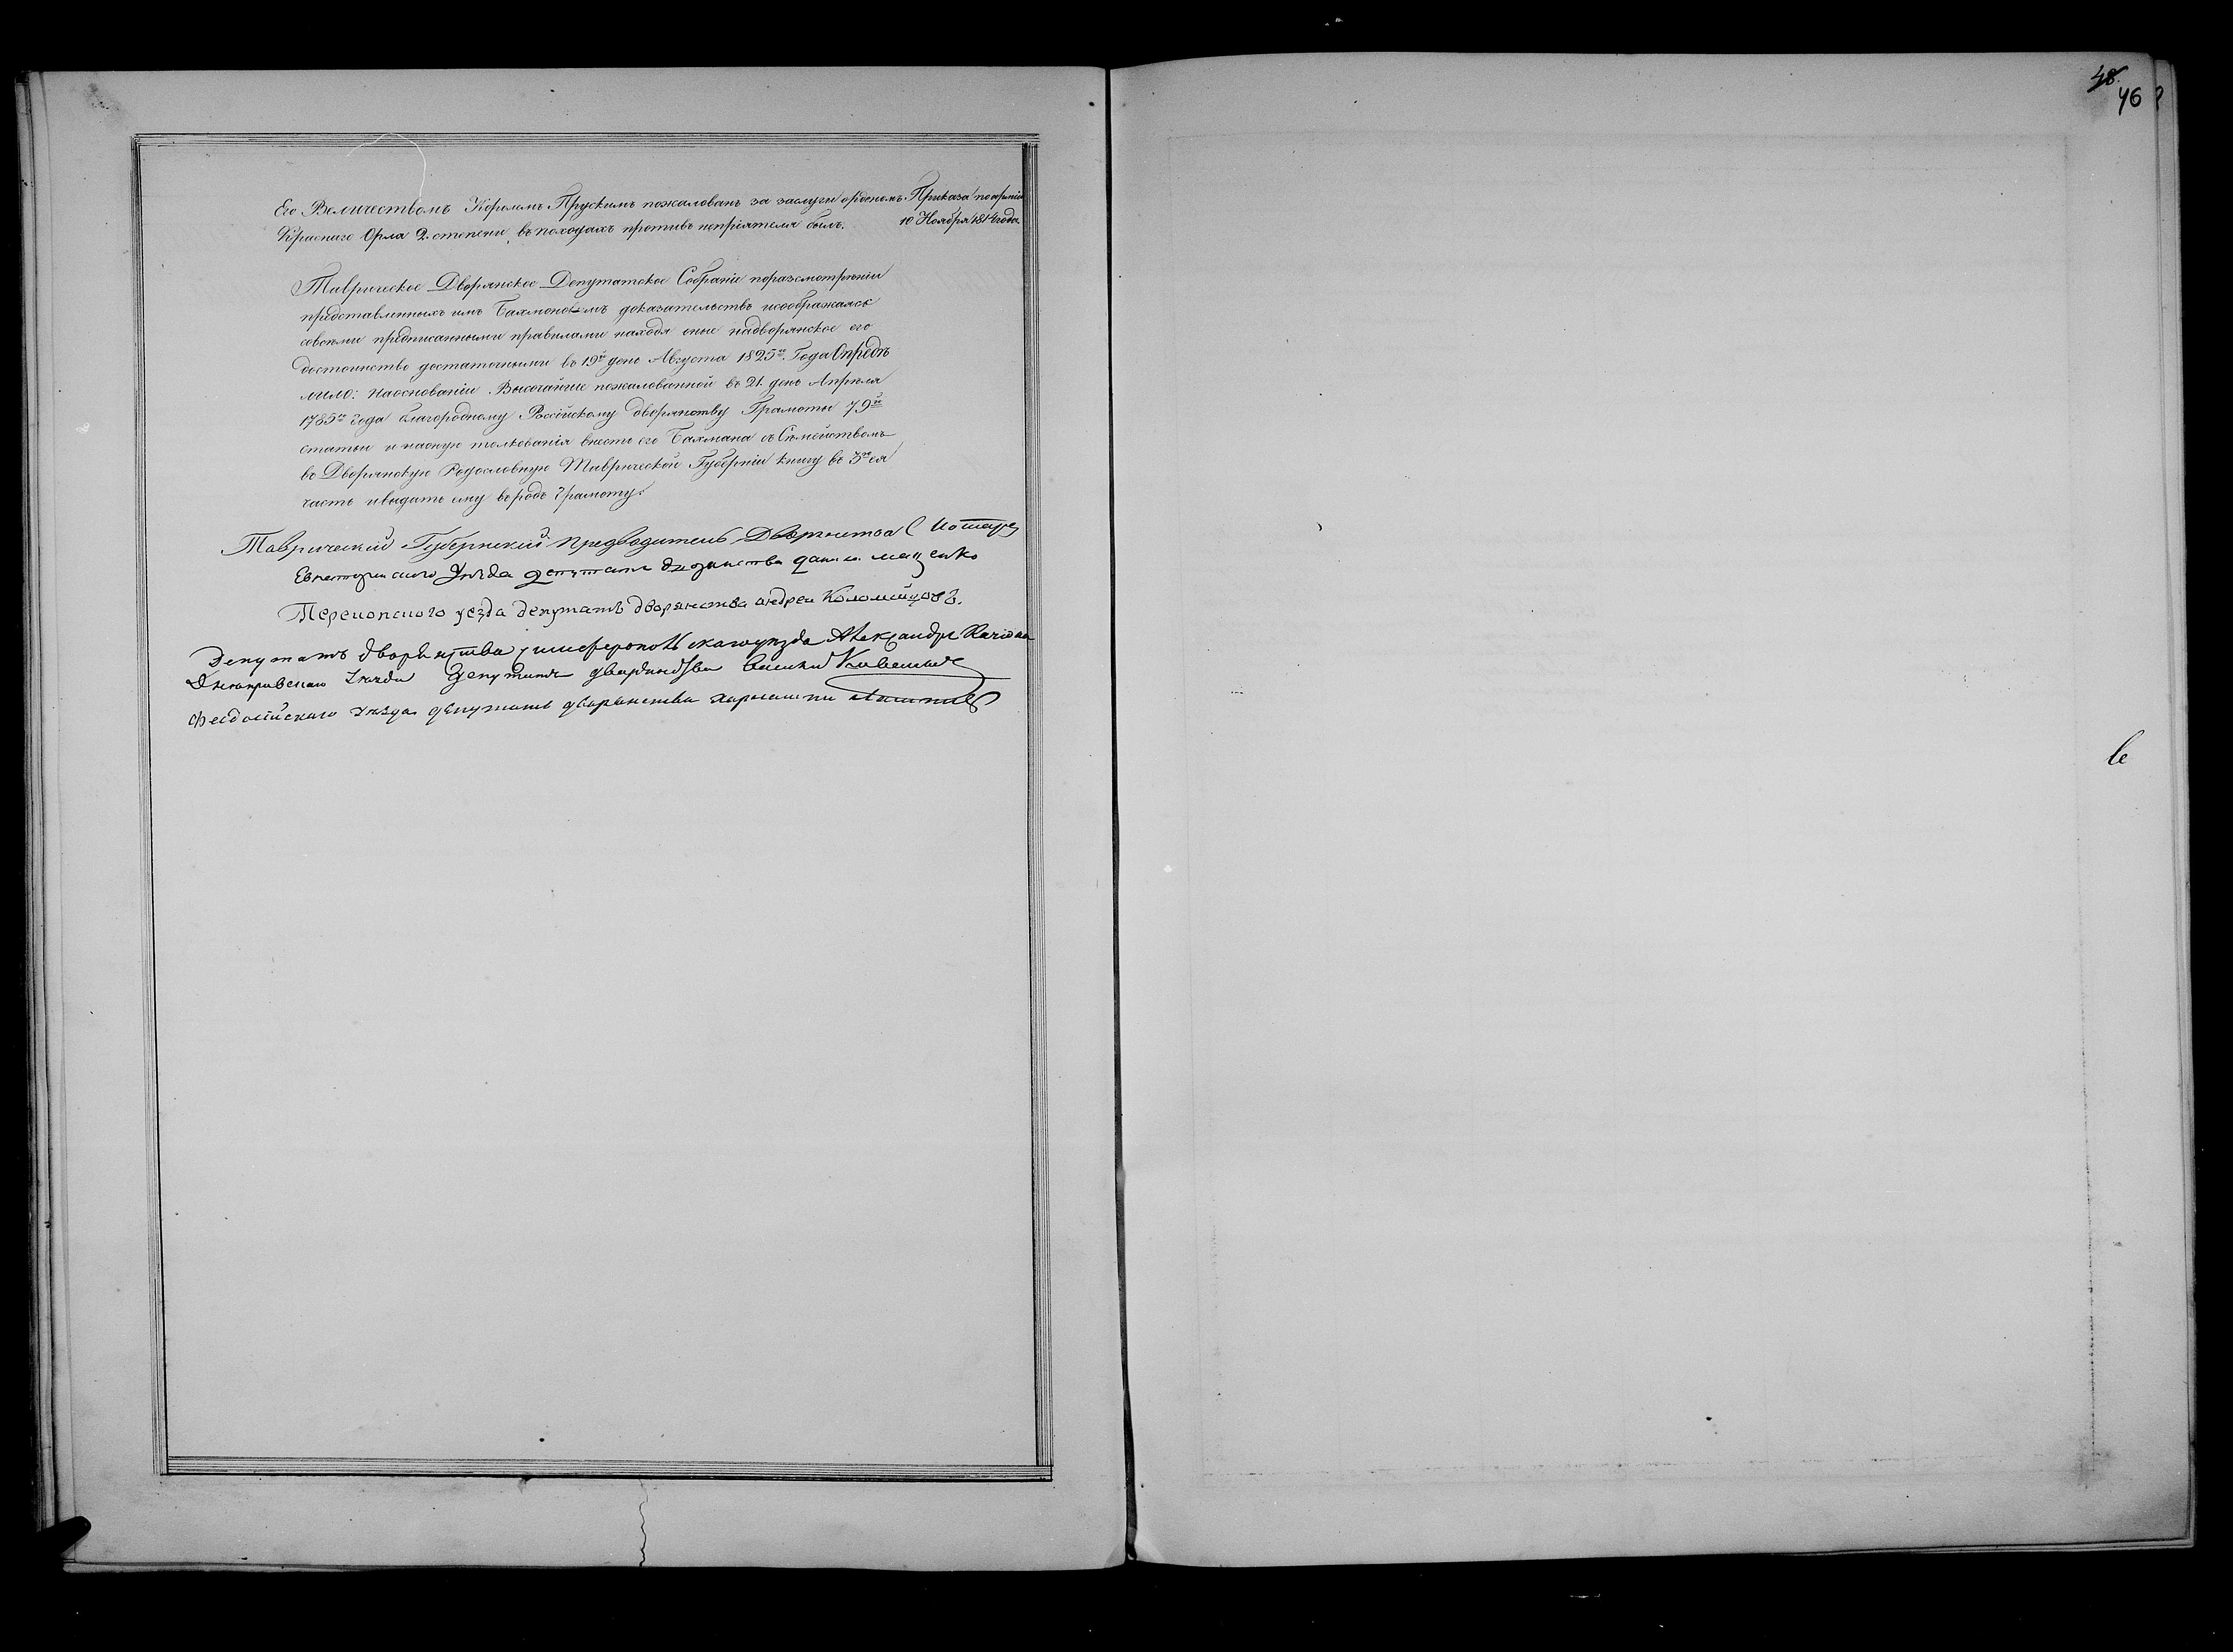 48
46
Его Величествомъ Королемъ Прускимъ пожалованъ за заслуги орденомъ
Краснаго Орла 2. степени, въ походахъ противъ непріятеля былъ.
Приказа по арміи
10 Ноября 1814 года
Таврическое Дворянское Депутатское Собраніе поразсмотреніи
представленныхъ имъ Бахмономъ доказательствъ исоображаясь
совсеми предписанными правилами находя оные надворянское его
достоинство достаточными въ 19й день Августа 1825го Года Опредѣ
лило: Наоснованіи Высочайше пожалованной въ 21. день Апреля
1785го Года благородному Россійскому дворянству Грамоты 79й
статьи и наоную толкованія внесть его Бахмана съ Семействомъ
въ Дворянскую Родословную Таврической Губерніи книгу во 3ю ея
часть ивыдать ему въродъ Грамоту.
Таврический Губернский Предводитель Дворянства
Евпаторийскаго Уѣзда депутатъ дворянства мащенко
Перекопского уезда депутатъ дворянства андреи Коломийцовъ.
Депутатъ дворянства симферопольскагоуезда Александръ
Днепровскаго Уезда Депутатъ дворянства Василий
Феодосийскаго Уезда депутатъ дворянства